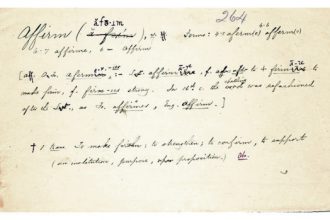 264
ăfə·ɹm
Affirm ( ), v. Forms: 4-5 aferm(e) 4-6 afferm(e)
4-7 affirme, 6- Affirm
[a. OFr. afermer:- L. affirmāre, f. af- = ad- to + firmāre to
make firm, f. firm-us strong. In 16th c. the spelling was refashioned
after the L., as Fr. affirmer, Eng. affirm.]
† 1 trans To make firm, to strengthen; to confirm, to support
(an institution, purpose, or proposition). Obs.